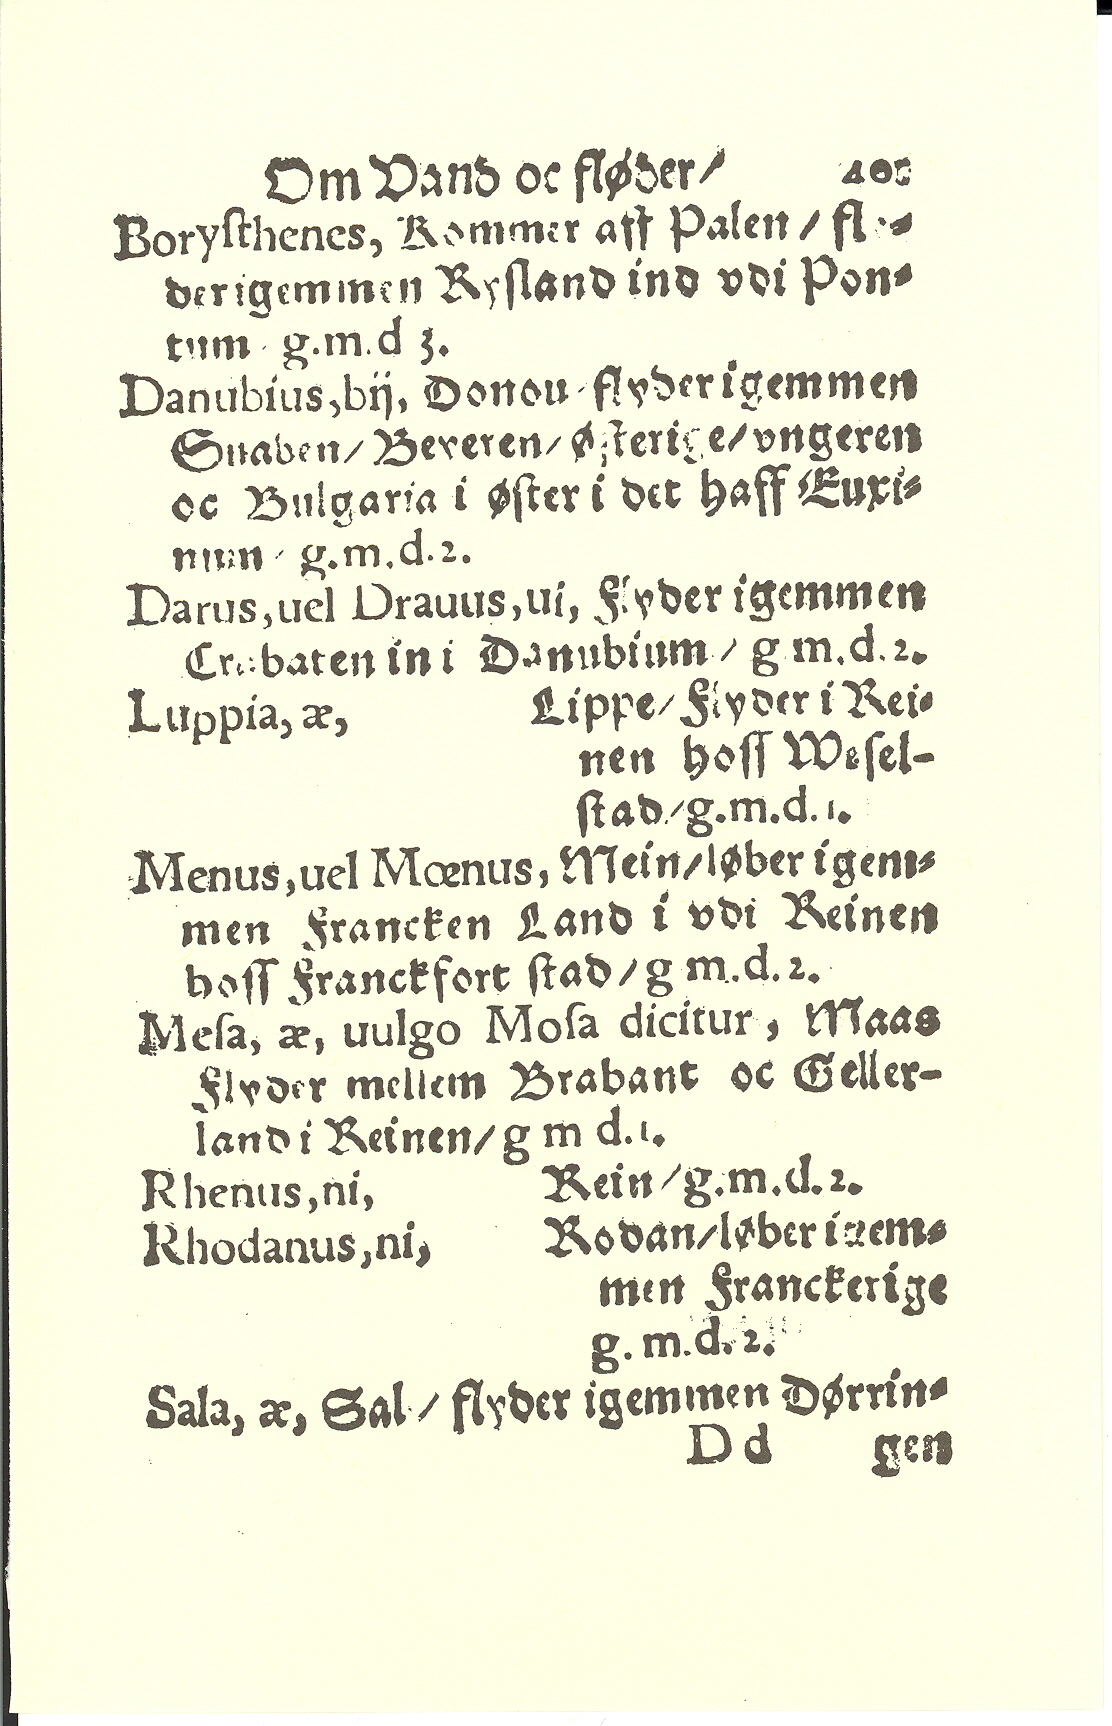 Om Vand oc fløder/
Borysthenes, Kommer aff Palen/
der igemmen Rysland ind vdi Pon⸗
tum g.m.d 3.
Danubius, bij, Donou flyder igemmen
Suaben/ Beyeren/ Østerige/ vngeren
oc Bulgaria i øster i det haff Euxi⸗
num g.m.d.2.
Darus, uel Drauus, ui, Flyder igemmen
Crabaten in i Danubium/ g m.d.2.
Luppia, æ, Lippe/ Flyder i Rei⸗
nen hoſſ Weſel-
ſtad/ g.m.d.1.
Menus, uel Mœnus, Mein/ løber igem⸗
men Francken Land i vdi Reinen
hoſſ Franckfort ſtad/ g m.d.2.
Meſa, æ, uulgo Moſa dicitur, Maas
Flyder mellem Brabant oc Geller-
land i Reinen/ g m d.1.
Rhenus, ni, Rein/ g.m.d.2.
Rhodanus, ni, Rodan/ løber igem⸗
men Franckerige
g.m.d.2.
Sala, æ, Sal/ flyder igemmen Dørrin⸗
D d gen